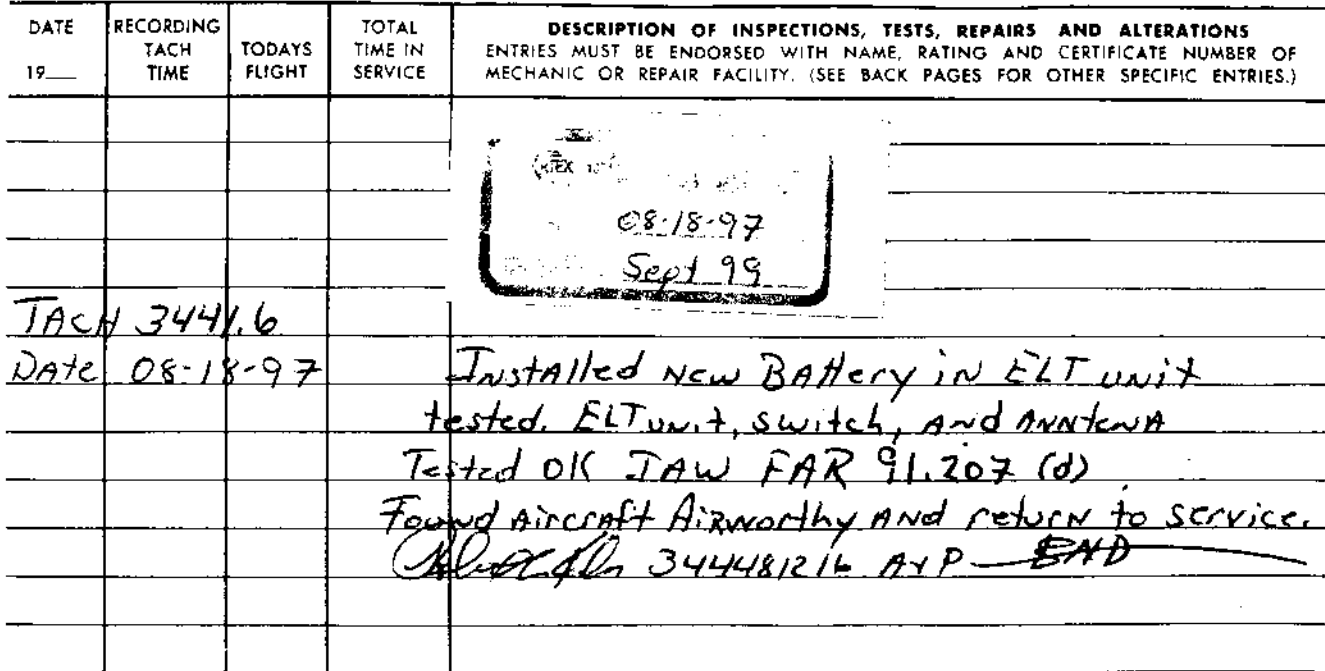 DATE
19
RECORDING TACH TIME
TODAYS FLIGHT
TOTAL TIME IN SERVICE
DESCRIPTION OF INSPECTIONS, TESTS, REPAIRS AND ALTERATIONS
ENTRIES MUST BE ENDORSED WITH NAME, RATING AND CERTIFICATE NUMBER OF
MECHANIC OR REPAIR FACILITY. (SEE BACK PAGES FOR OTHER SPECIFIC ENTRIES.)
08-18-97
Sept 99
TACH 3441.6
Date 08-18-97
Installed New Battery in ELT unit
tested. ELT unit, switch, And ANNtenA
Tested OK IAW FAR 91.207 (d)
Found Aircraft Airworthy And return to service.
A&P END